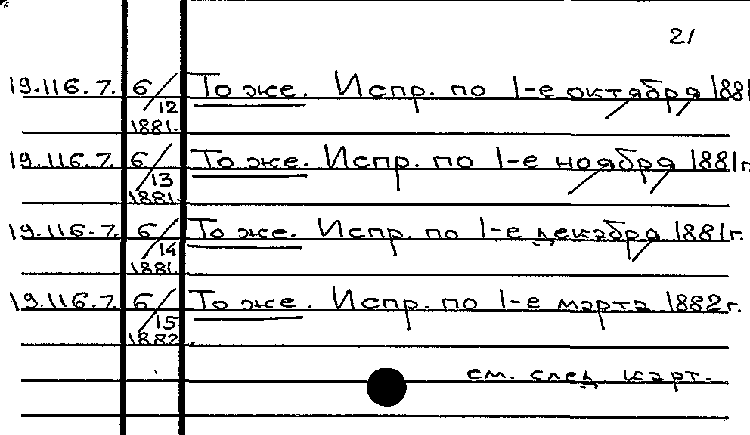 21
19.116.7. 6/12 То же. Испр. по 1-е октября 1881
1881.
19.116.7 6/13 То же. Испр. по 1-е ноября 1881г.
1881.
19.116.7. 6/14 То же. Испр. по 1-е декабря 1881г.
1881.
19.116.7. 6/15 То же. Испр. по 1-е марта 1882г.
1882
см. след карт.